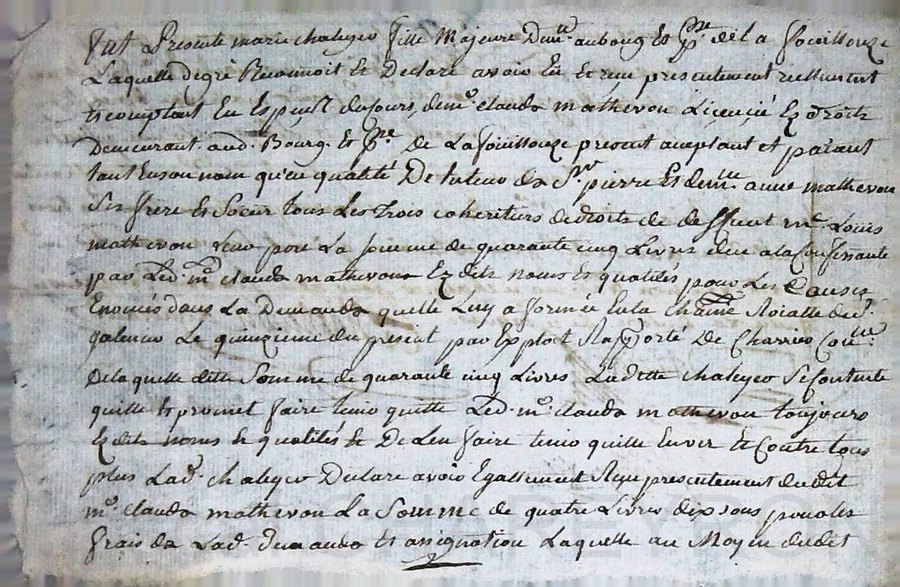 fut Presente marie chaleyer fille Majeure Demte. aubourg Et psse. de la fouillouze
Laquelle degré Reconnoit Et Declare avoir Eu Et recu presentement reellement
Et comptant En Especes du Cours, de me. claude mathevon Licencié Ez droits
Demeurant aud. Bourg Et psse. De La fouillouze present aceptant et païant
tant En son nom qu'en qualité De tuteur de Sr. pierre Et demlle. anne mathevon
Ses frere Et Soeur tous Les trois coheritiers de droits de deffunt me. Louis
mathevon Leur pere La somme de quarante cinq Livres due a la Confessante
par Led. me. claude mathevon Ez dits noms Et qualités pour Les Causes
Enoncés dans La Demande quelle Luy a formée En la Chatnie Roialle de St.
galmier Le quinzieme du present par Exploit Raporté De Charrier
De laquelle ditte Somme de quarante cinq Livres Ladette chaleyer Se contente
quitte Et promet faire tenir quitte Led. me. claude mathevon toujours
Ez dits noms Et qualités Et De Len faire tenir quitte Enver Et Contre tous
plus Lad. chaleyer Declare avoir Egallement Reçu presentement dudit
me. claude mathevon La Somme de quatre Livres dix sous pour les
frais de Lad. demande Et assignation Laquelle au Moyen dudit